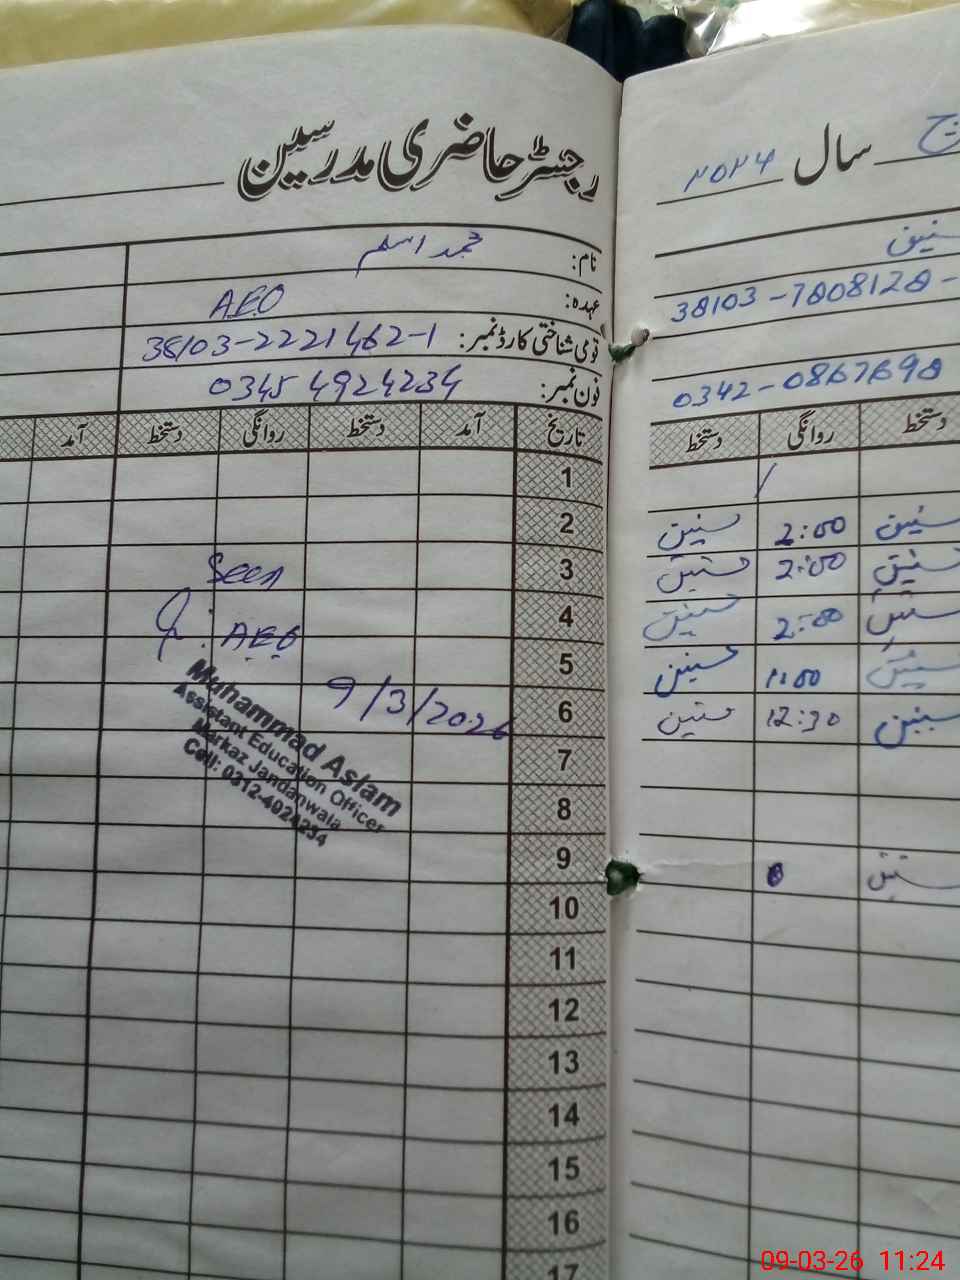 رجسٹر حاضری مدرسین
سال ۲۰۲۶
نام: محمد اسلم
عہدہ: AEO
قومی شناختی کارڈ نمبر: 38103-2221462-1
فون نمبر: 0345 4924234
تاریخ آمد دستخط روانگی دستخط آمد
1
2
3
Seen
4
AEO
5
6
9/3/2026
Muhammad Aslam
Assistant Education Officer
Markaz Jandanwala
Cell: 0312-4924234
7
8
9
10
11
12
13
14
15
16
17
38103-7808128-
0342-0867698
دستخط روانگی دستخط
2:00
2:00
2:00
11:00
12:30
09-03-26 11:24